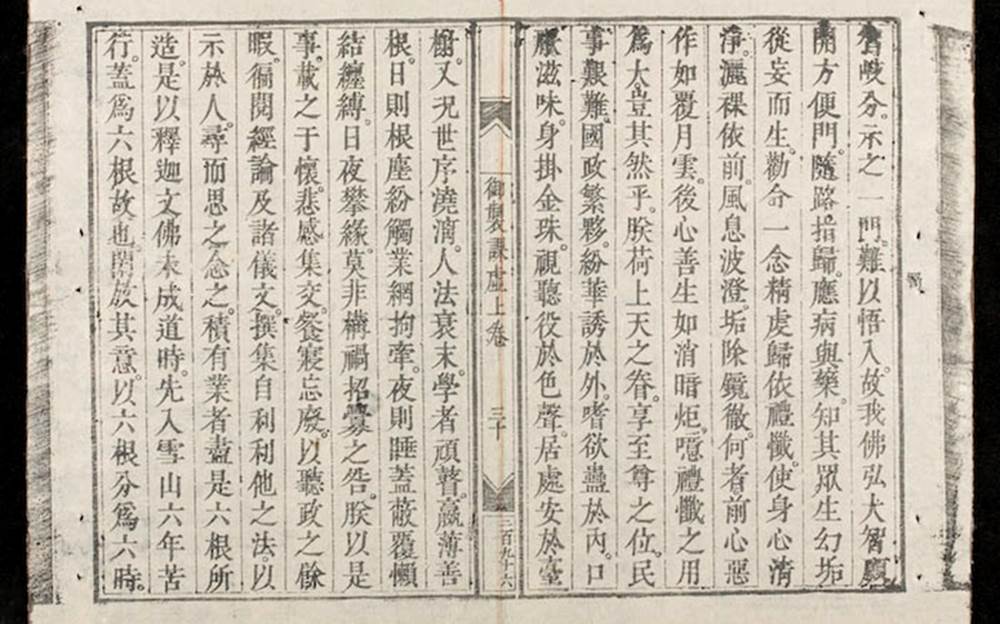 智峻分示之一門難以悟入故我佛弘大智
開方便門隨路指歸應病與藥知其眾生幻垢
從妄而生勸令一念精虔歸依禮懺使身心清
淨灑裸依前風息波澄垢除鏡徹何者前心惡
作如覆月雲後心善生如消暗炬噫禮懺之用
為大豈其然乎朕荷上天之眷享至尊之位民
事艱難國政繁夥紛華誘於外嗜欲蠱於內口
厭滋味身掛金珠視聽役於色聲居處安於臺
御製課虛上卷 三十 三百九十六
榭又況世序澆漓人法衰末學者頑瞽羸薄善
根日則根塵紛觸業網拘牽夜則睡蓋蔽覆懶
結纏縛日夜攀緣莫非構禍招釁之咎朕以是
事載之于懷悲感集交餐寢忘廢以聽政之餘
暇徧閱經論及諸儀文撰集自利利他之法以
示於人尋而思之念之積有業者盡是六根所
造是以釋迦文佛未成道時先入雪山六年苦
行蓋為六根故也閑放其意以六根分為六時